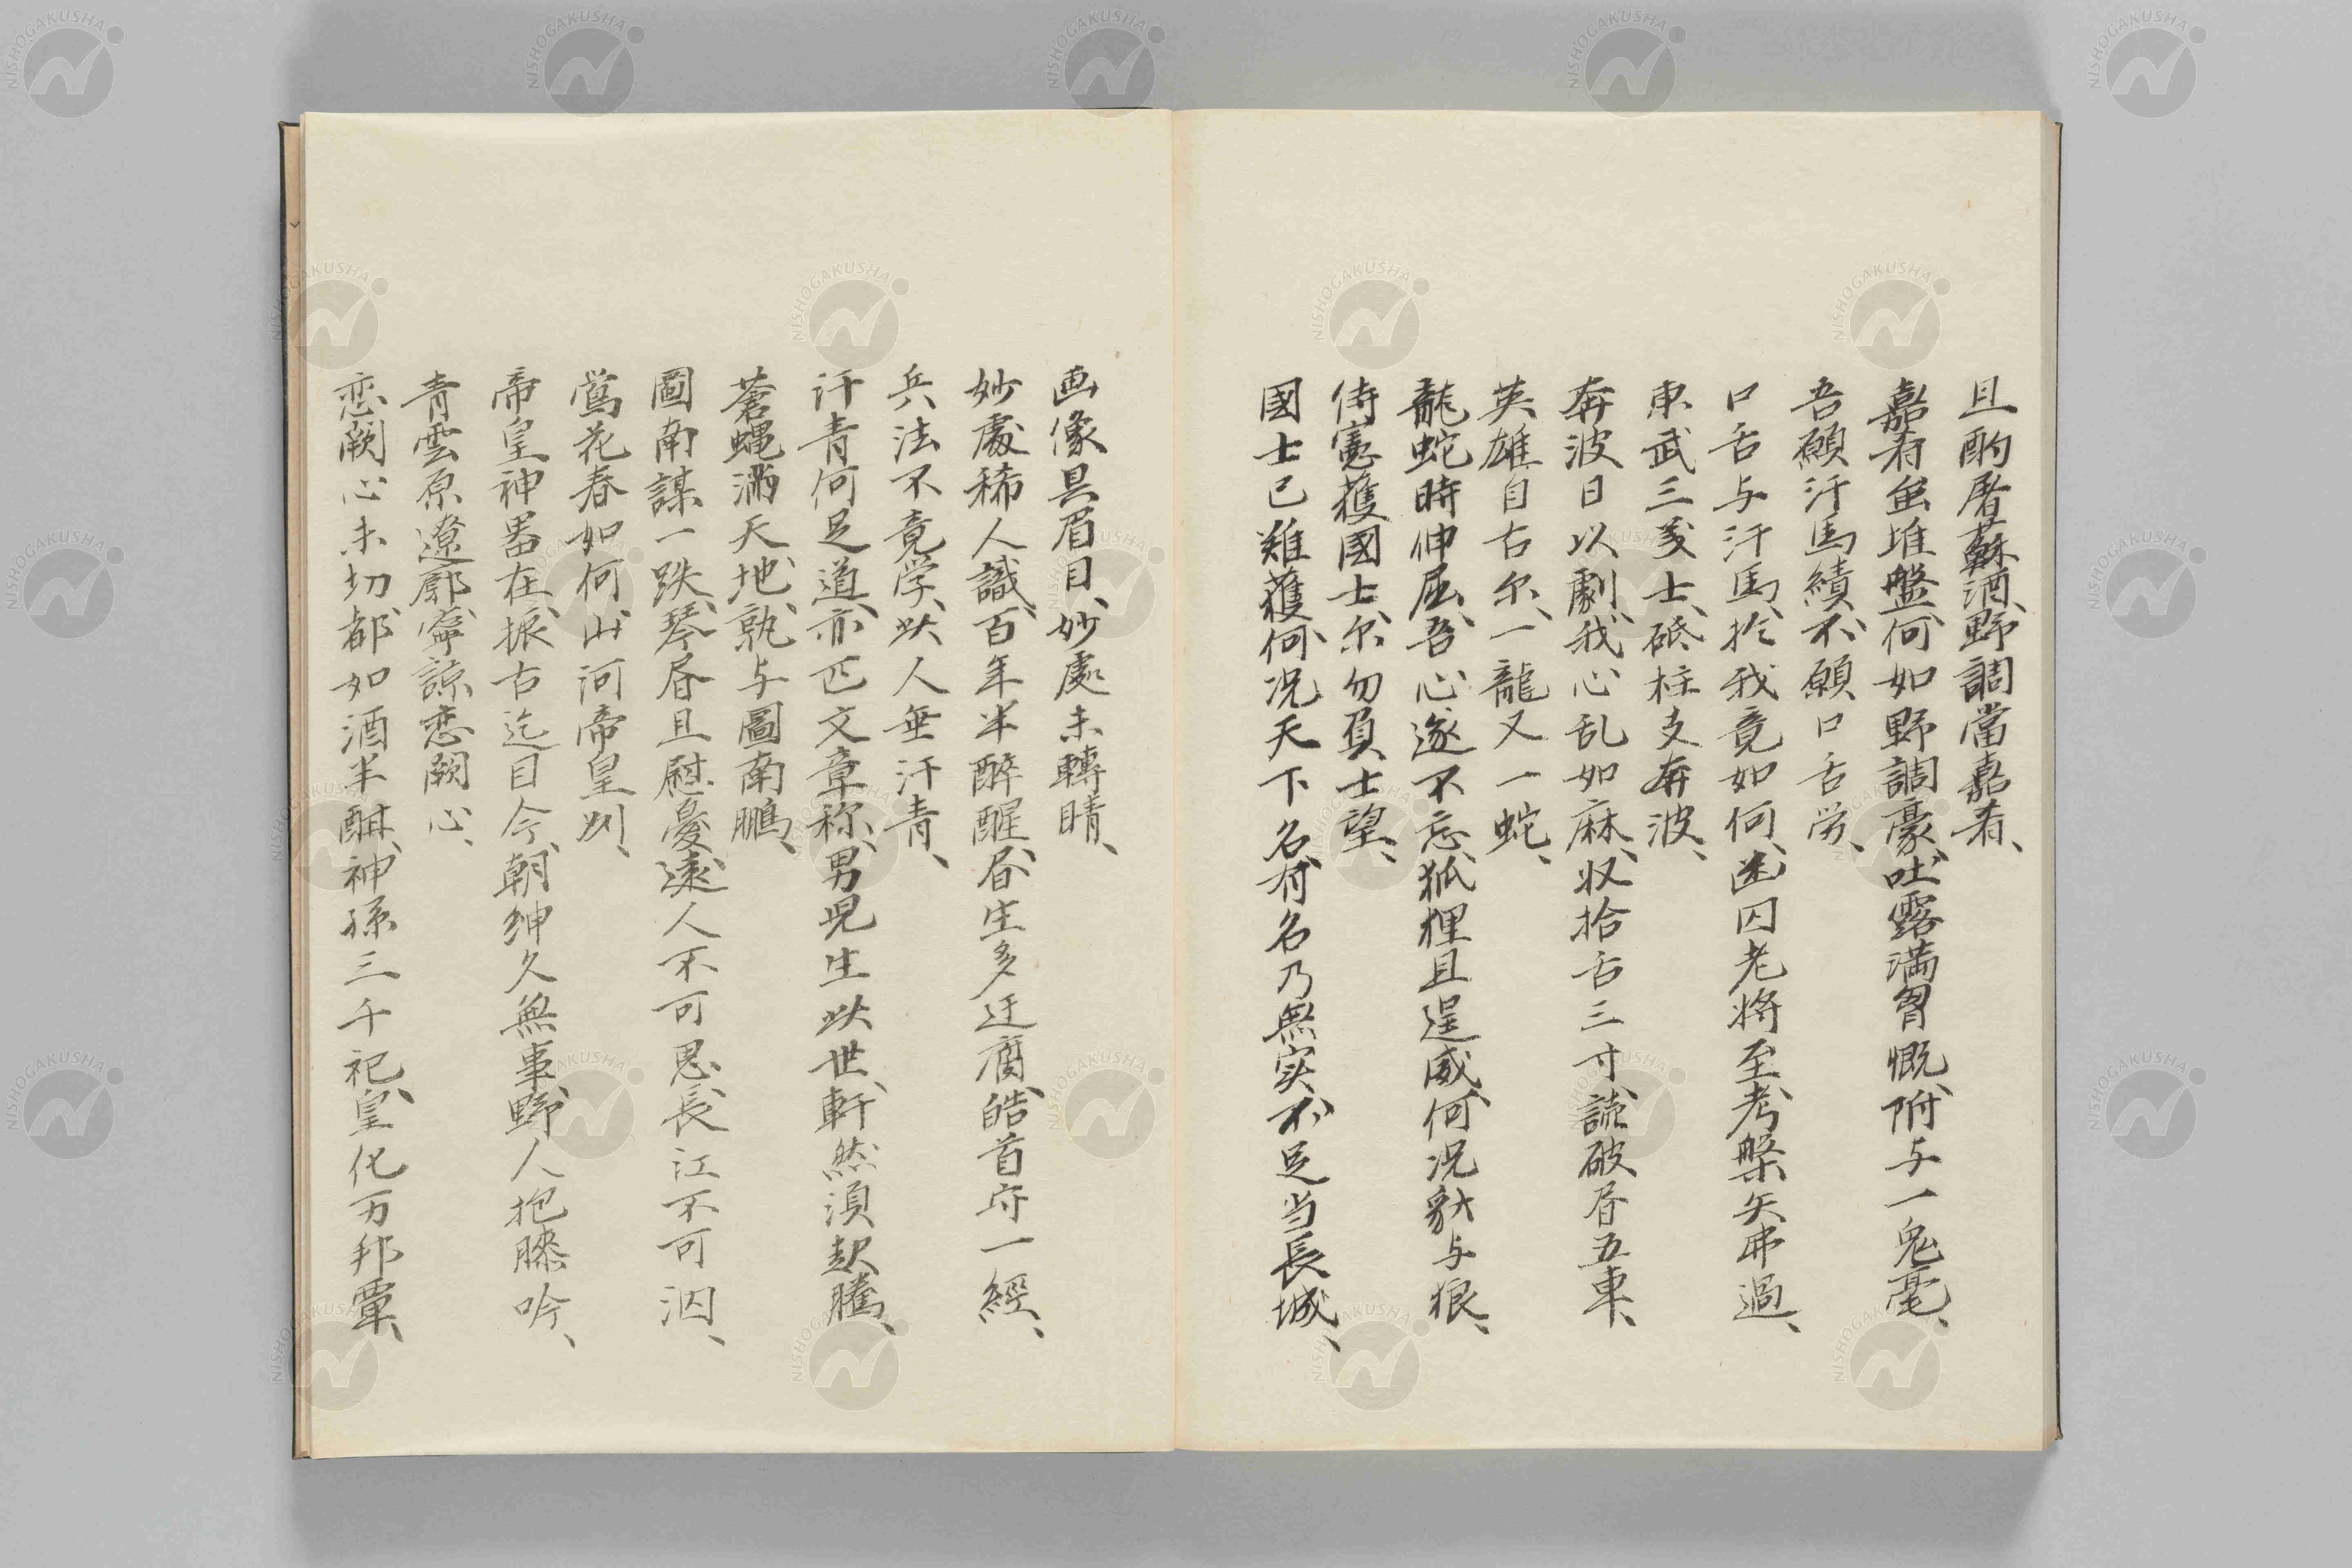 且酌屠蘇酒、野調當嘉肴、
嘉肴無堆盤、何如野調豪、吐露満胷慨、附与一兔毫、
吾願汗馬績、不願口舌労、
口舌与汗馬、於我竟如何、迷囚老将至、考槃矢弗過、
東武三菱士、砥柱支奔波、
奔波日以劇、我心乱如麻、収拾舌三寸、読破眉五車、
英雄自古尔、一龍又一蛇、
龍蛇時伸屈、吾心遂不忘、狐狸且逞威、何況豺与狼、
侍憲獲國士、尔勿負士望、
國士已難獲、何况天下名、有名乃無実、不足当長城、
画像具眉目、妙處未轉睛、
妙處稀人識、百年半醉醒、眉生多迂腐、皓首守一經、
兵法不竟学、以人垂汗青、
汗青何足道、亦匹文章称、男児生此世、軒然須起騰、
蒼蝿満天地、孰与圖南鵬、
圖南謀一跌、琴眉且慰憂、遠人不可思、長江不可泅、
鶯花春如何、山河帝皇州、
帝皇神器在、振古迄自今、朝紳久無事、野人抱膝吟、
青雲原遼廓、寧諒恋闕心、
恋闕心未切、都如酒半酣、神孫三千祀、皇化万邦覃、
NISHOGAKUSHA